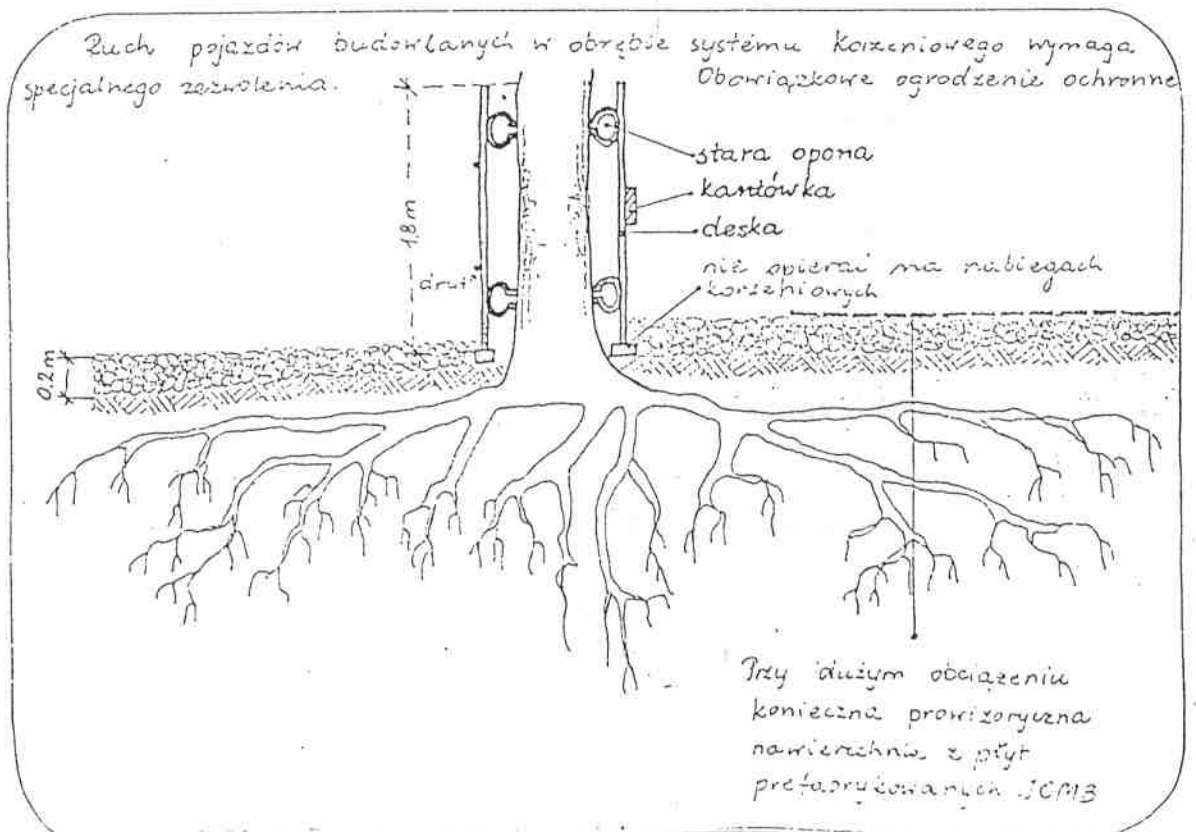 Ruch pojazdów budowlanych w obrębie systemu korzeniowego wymaga
specjalnego zezwolenia. Obowiązkowe ogrodzenie ochronne
1,8 m
stara opona
kantówka
deska
drut
nie opierać na nabiegach
korzeniowych
0,2 m
Przy dużym obciążeniu
konieczna prowizoryczna
nawierzchnia z płyt
prefabrykowanych